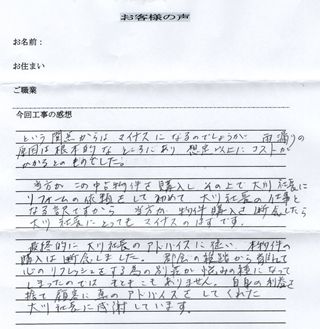 お客様の声
お名前：
お住まい
ご職業
今回工事の感想
という関点からは マイナスになるのでしょうが 雨漏りの
原因は根本的なところにあり 想定以上にコストが
かかるとのものでした。
当方がこの中古物件を購入し その上で大川社長に
リフォームの依頼をして初めて 大川社長の仕事と
なる訳ですから 当方が物件購入を断念したら
大川社長にとってもマイナスのはずです。
最終的に大川社長のアドバイスに従い 本物件の
購入は断念しました。 都会の喧騒から離れて
心のリフレッシュをする為の別荘が悩みの種になって
しまったのでは元も子もありません。 自身の利益を
捨て顧客に真のアドバイスをしてくれた
大川社長に感謝しています。